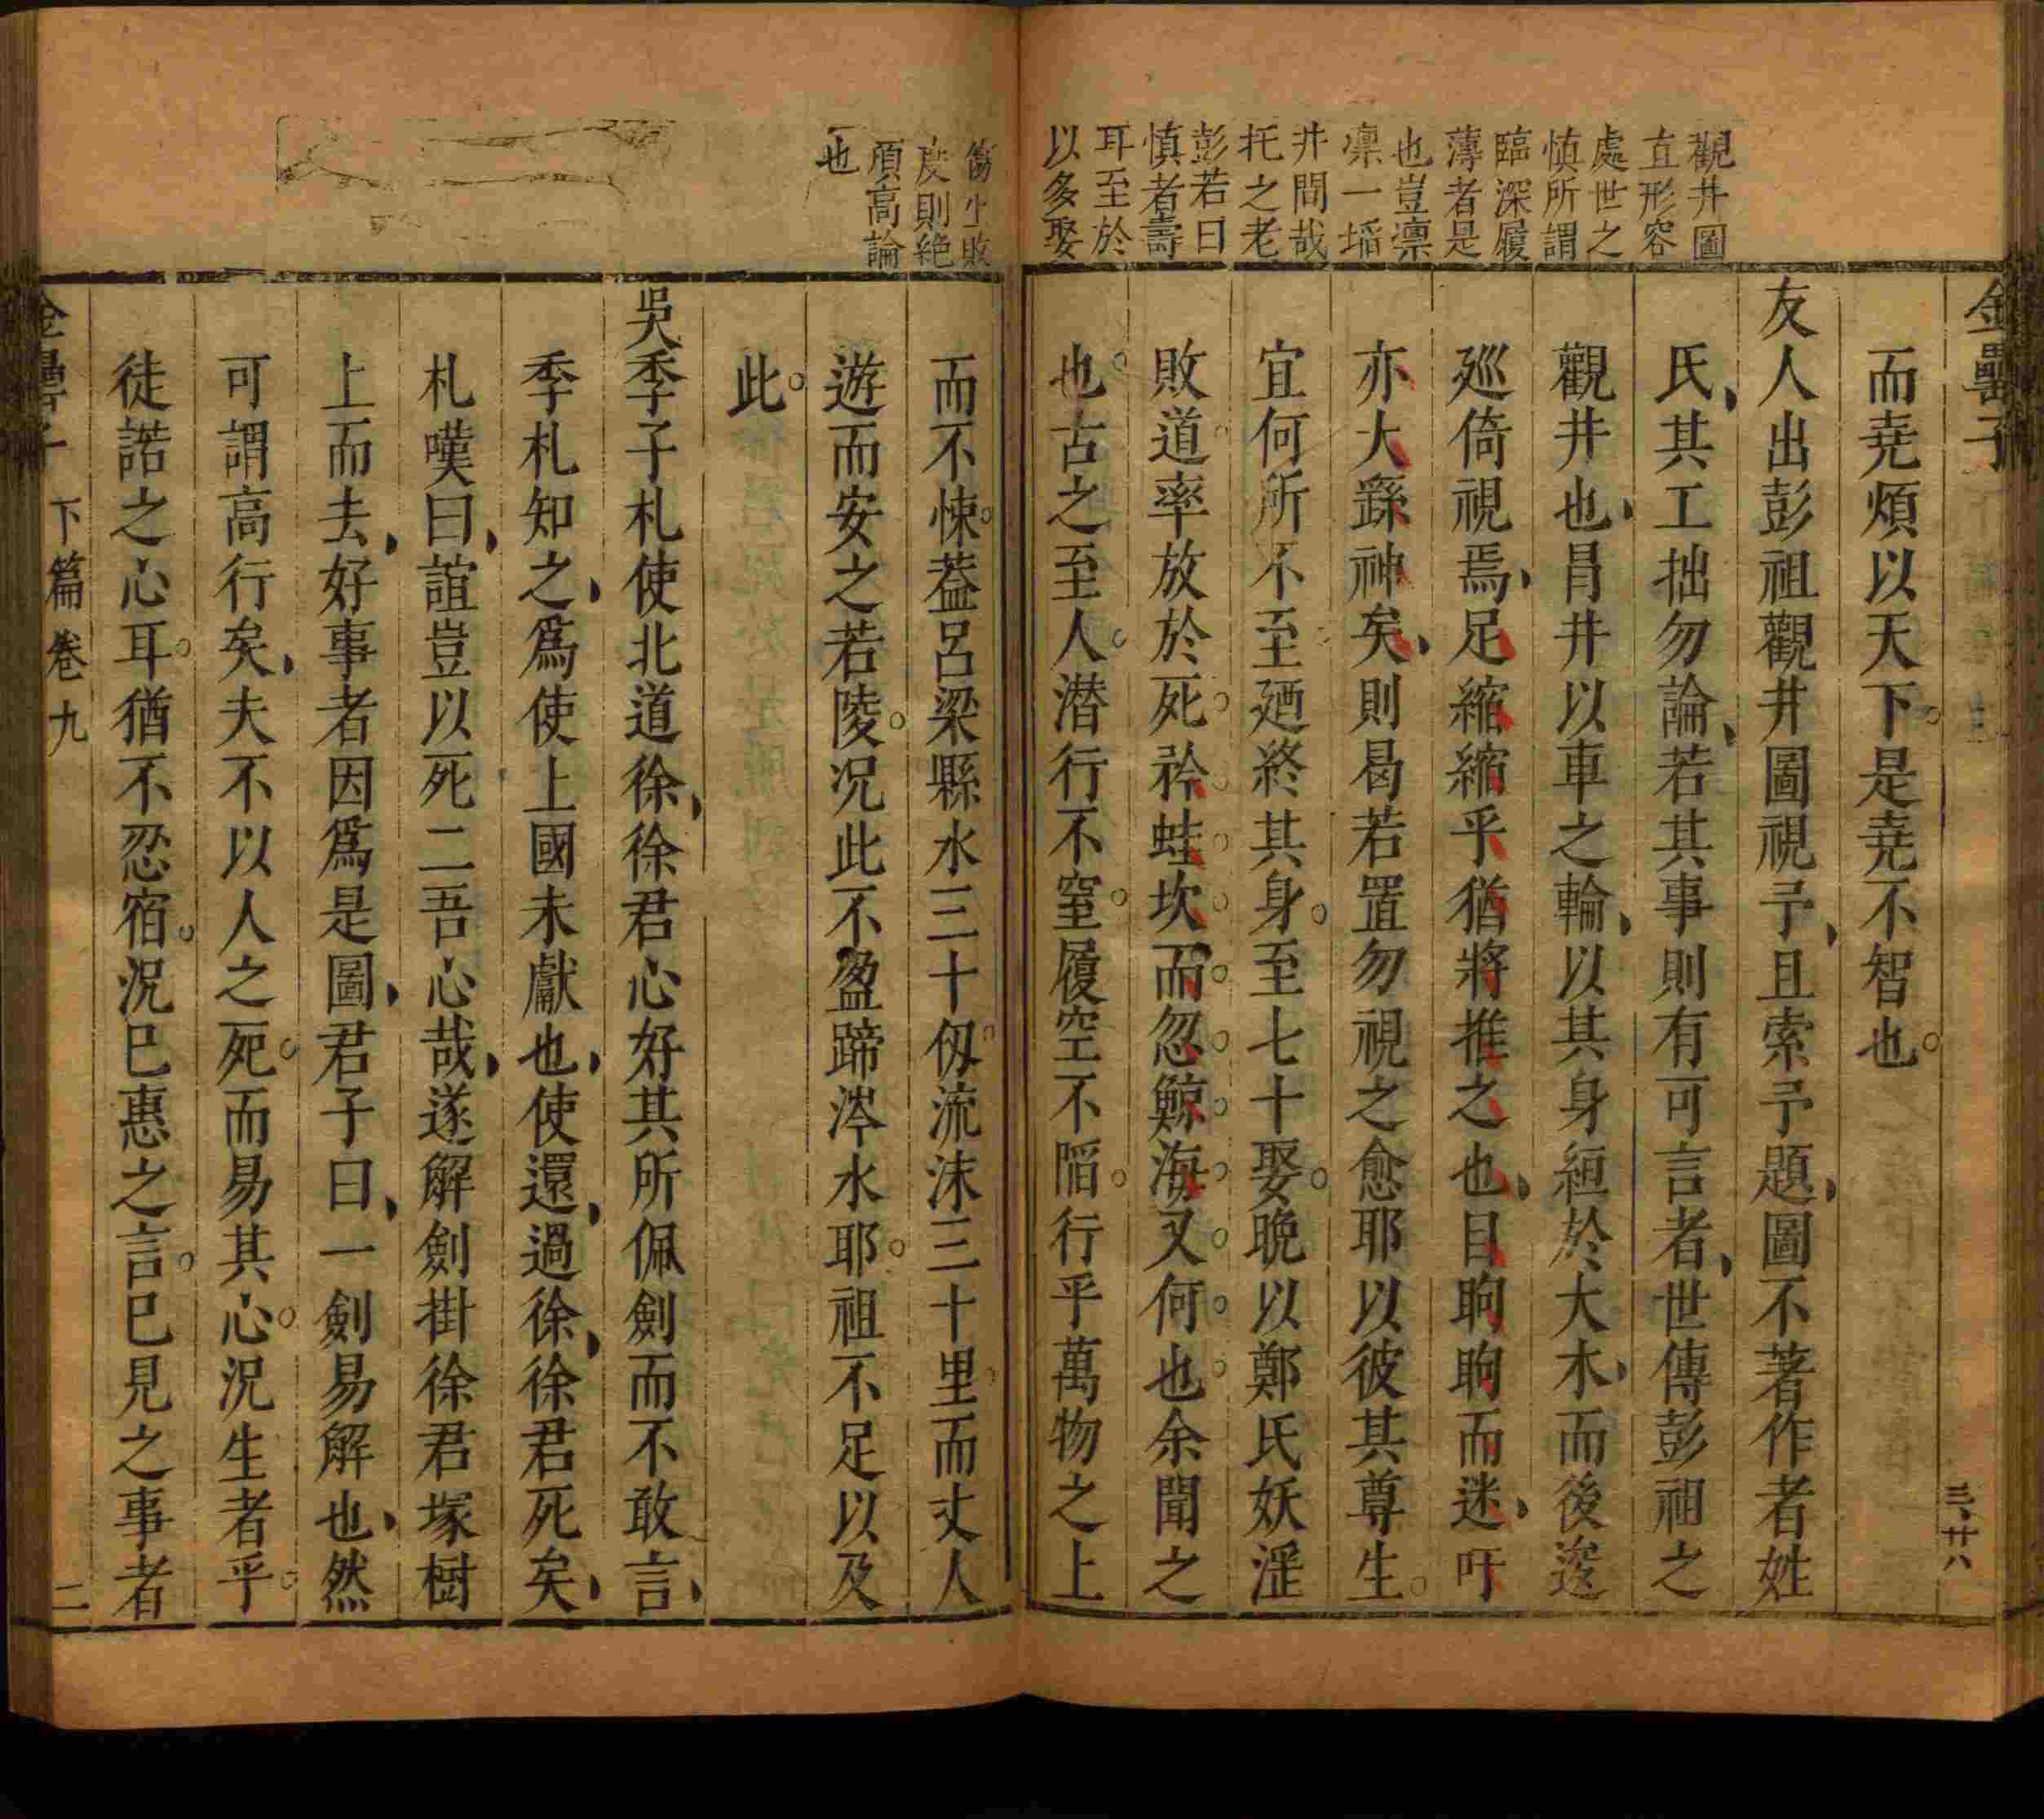 金罍子
三、廿八
觀井圖
直形容
處世之
慎所謂
臨深履
薄者是
也豈凛
凛一埳
井間哉
托之老
彭若曰
慎者壽
耳至於
以多娶
而堯煩以天下是堯不智也
友人出彭祖觀井圖視予且索予題圖不著作者姓
氏其工拙勿論若其事則有可言者世傳彭祖之
觀井也肙井以車之輪以其身絙於大木而後逡
廵倚視焉足縮縮乎猶將推之也目眴眴而迷吁
亦大繇神矣則曷若置勿視之愈耶以彼其尊生
宜何所不至廼終其身至七十娶晚以鄭氏妖滛
敗道率放於死矜蛙坎而忽鯨海又何也余聞之
也古之至人潜行不窒履空不陷行乎萬物之上
傷生敗
度則絶
頑高論
也
而不悚葢呂梁縣水三十仭流沫三十里而丈人
遊而安之若陵况此不盈蹄涔水耶祖不足以及
此
吳季子札使北道徐徐君心好其所佩劍而不敢言
季札知之爲使上國未獻也使還過徐徐君死矣
札嘆曰誼豈以死二吾心哉遂解劍掛徐君塚樹
上而去好事者因爲是圖君子曰一劍易解也然
可謂高行矣夫不以人之死而易其心況生者乎
徒諾之心耳猶不忍宿況巳惠之言巳見之事者
金罍子 下篇卷九 二